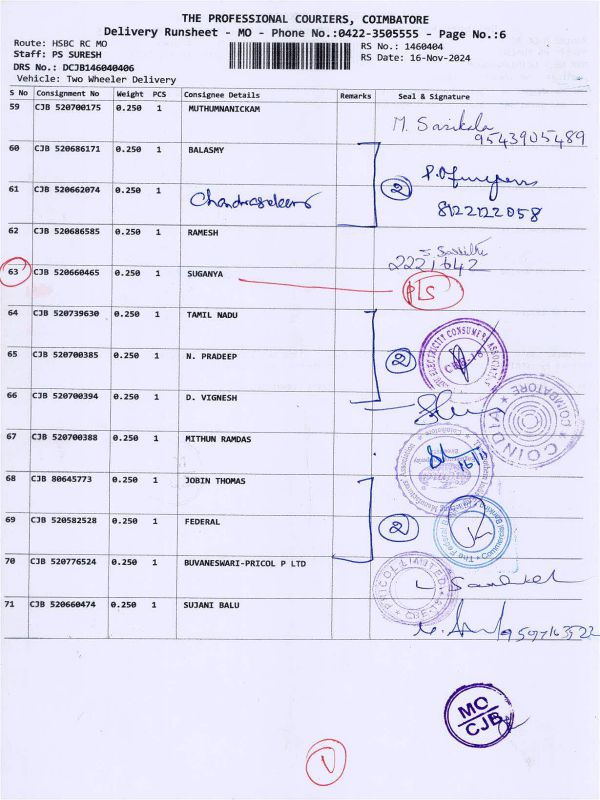 THE PROFESSIONAL COURIERS, COIMBATORE
Delivery Runsheet - MO - Phone No.:0422-3505555 - Page No.:6
Route: HSBC RC MO
RS No.: 1460404
Staff: PS SURESH
RS Date: 16-Nov-2024
DRS No.: DCJB146040406
Vehicle: Two Wheeler Delivery
S No Consignment No Weight PCS Consignee Details Remarks Seal & Signature
59 CJB 520700175 0.250 1 MUTHUMNANICKAM
M. Sasikala
9543905489
60 CJB 520686171 0.250 1 BALASMY
2
61 CJB 520662074 0.250 1
8122122058
62 CJB 520686585 0.250 1 RAMESH
2221642
63 CJB 520660465 0.250 1 SUGANYA
64 CJB 520739630 0.250 1 TAMIL NADU
ELECTRICITY CONSUMER
2
65 CJB 520700385 0.250 1 N. PRADEEP
66 CJB 520700394 0.250 1 D. VIGNESH
COINDIA
COIMBATORE
67 CJB 520700388 0.250 1 MITHUN RAMDAS
16/11
68 CJB 80645773 0.250 1 JOBIN THOMAS
2
69 CJB 520582528 0.250 1 FEDERAL
70 CJB 520776524 0.250 1 BUVANESWARI-PRICOL P LTD
PRICOL LIMITED
CBE-18
71 CJB 520660474 0.250 1 SUJANI BALU
MO
CJB
1